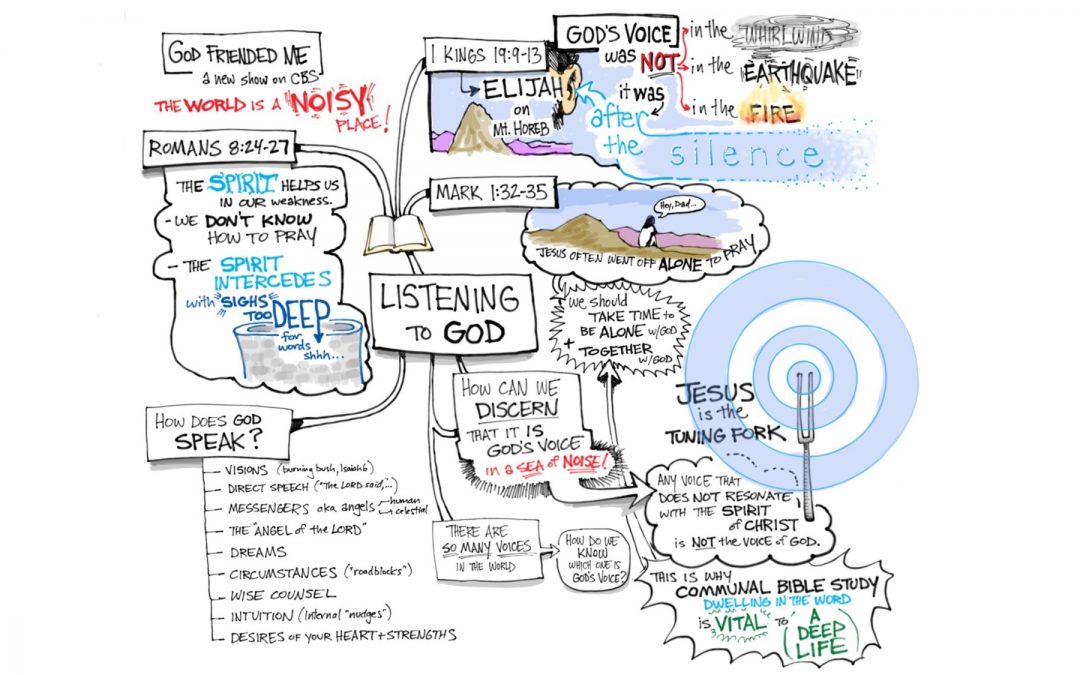 GOD FRIENDED ME
a new show on CBS
THE WORLD IS A NOISY
PLACE!
1 KINGS 19:9-13
ELIJAH
on
Mt. HOREB
GOD'S VOICE
was NOT
in the WHIRLWIND
in the EARTHQUAKE
in the FIRE
it was
after
the
silence
ROMANS 8:24-27
THE SPIRIT HELPS US
IN OUR WEAKNESS.
- WE DON'T KNOW
HOW TO PRAY
- THE SPIRIT
INTERCEDES
with SIGHS
TOO DEEP
for
words
shhh...
MARK 1:32-35
Hey, Dad...
JESUS OFTEN WENT OFF ALONE TO PRAY
LISTENING
TO GOD
we should
TAKE TIME to
BE ALONE w/GOD
+ TOGETHER
w/GOD
HOW CAN WE
DISCERN
THAT IT IS
GOD'S VOICE
in a SEA of NOISE!
JESUS
is the
TUNING FORK
ANY VOICE THAT
DOES NOT RESONATE
WITH THE SPIRIT
of CHRIST
is NOT the VOICE of GOD.
HOW DOES GOD
SPEAK?
VISIONS (burning bush, Isaiah 6)
DIRECT SPEECH ("The LORD said,...")
MESSENGERS aka angels
human
celestial
THE "ANGEL of the LORD"
DREAMS
CIRCUMSTANCES ("roadblocks")
WISE COUNSEL
INTUITION (Internal "nudges")
DESIRES OF YOUR HEART + STRENGTHS
THERE ARE
SO MANY VOICES
IN THE WORLD
HOW DO WE
KNOW
WHICH ONE IS
GOD'S VOICE?
THIS IS WHY
COMMUNAL BIBLE STUDY
DWELLING IN THE WORD
is VITAL TO A
DEEP
LIFE